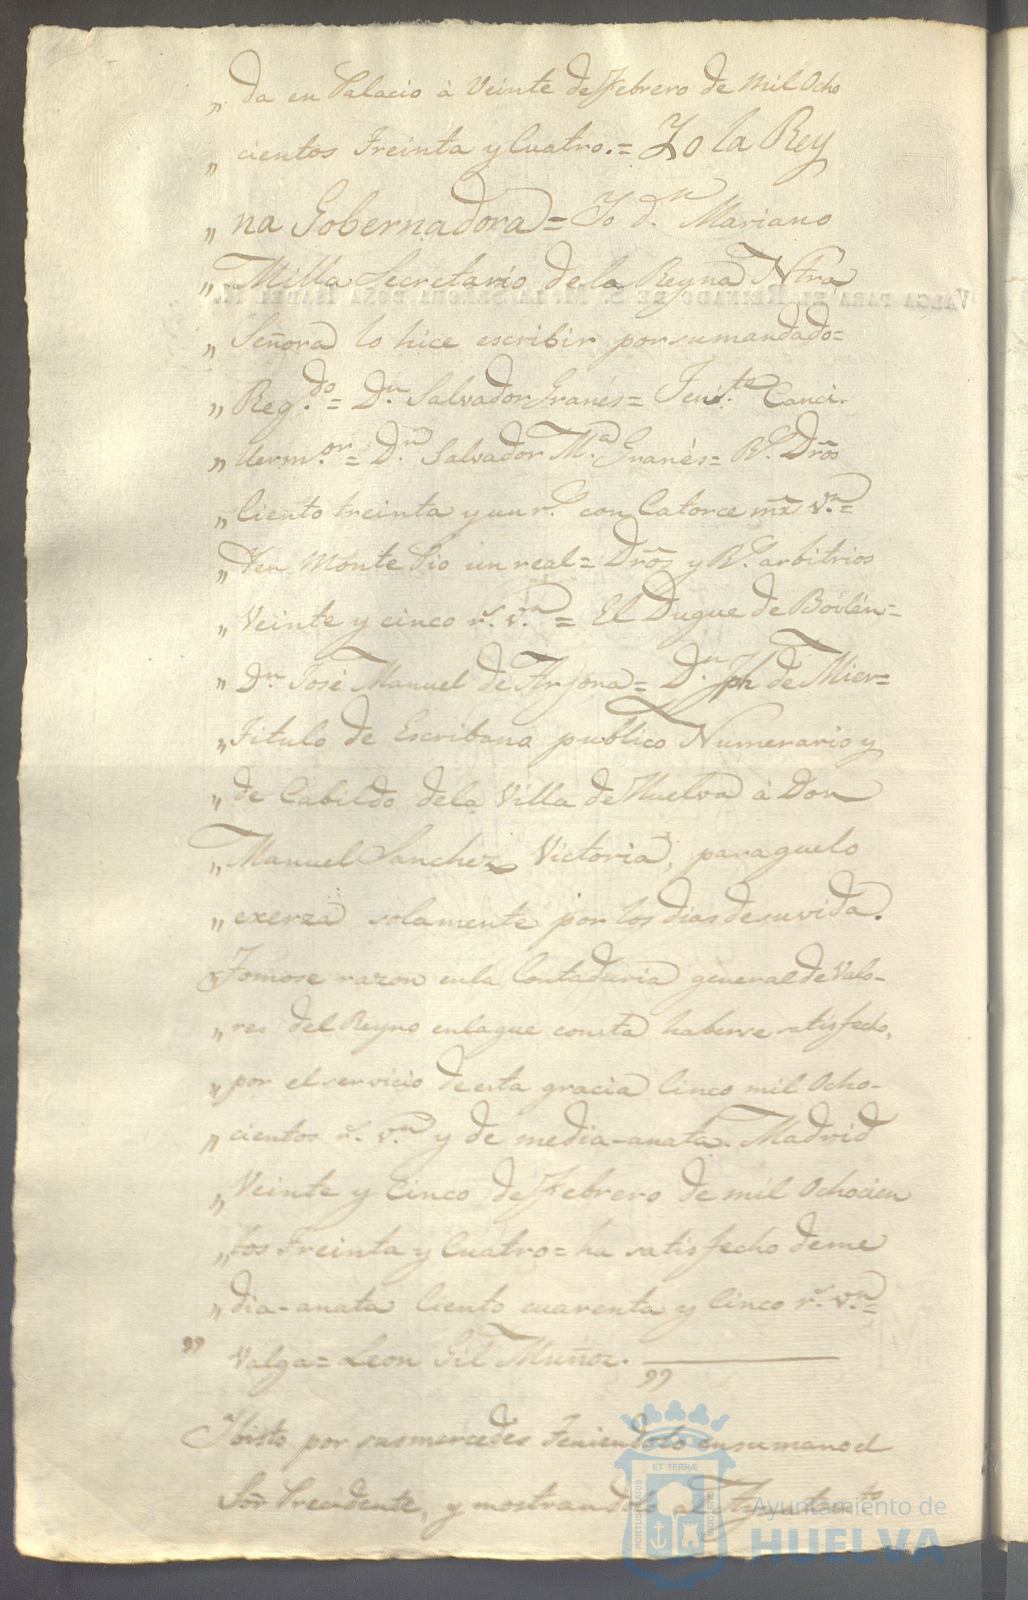 „ da en Palacio à Veinte de Febrero de Mil Ocho
„ cientos Treinta y Cuatro.= Yo la Rey
„ na Gobernadora= Yo d.n Mariano
„ Milla Secretario de la Reyna Ntrã
„ Señora lo hice escribir por su mandado=
„ Reg.do = D.n Salvador Granés= Ten.te Canci-
„ ller m.or = D.n Salvador M.a Granès= R.s Drõs
„ Ciento treinta y un r.s con Catorce mrs v.n=
„ Ydem Monte Pio un real= Drõs y R.s arbitrios
„ Veinte y cinco r.s v.n = El Duque de Bailén=
„ Dn José Manuel de Arjona= D.n Jph de Mier=
„ Titulo de Escribano publico Numerario y
„ de Cabildo dela Villa de Huelva à Don
„ Manuel Sanchez Victoria, para quelo
„ exerza solamente por los dias de su vida.
„ Tomose razon enla Contaduria general de Valo-
„ res del Reyno enlaque consta haberse satisfecho,
„ por el servicio de esta gracia Cinco mil Ocho-
„ cientos r.s v.n y de media-anata. Madrid
„ Veinte y Cinco de Febrero de mil Ochocien
„ tos Treinta y Cuatro= ha satisfecho deme
„ dia-anata Ciento cuarenta y Cinco r.s v.n=
„ Valga= Leon Gil Muñoz. — „
Ybisto por susmercedes Teniendolo ensumano el
Sor̃ Precidente, y mostrandolo al Ayuntam.to
VALGA PARA EL REINADO DE S. M. LA SEÑORA DOÑA ISABEL II.
PORTUS MARIS
ET TERRÆ
CUSTODIA
Ayuntamiento de
HUELVA